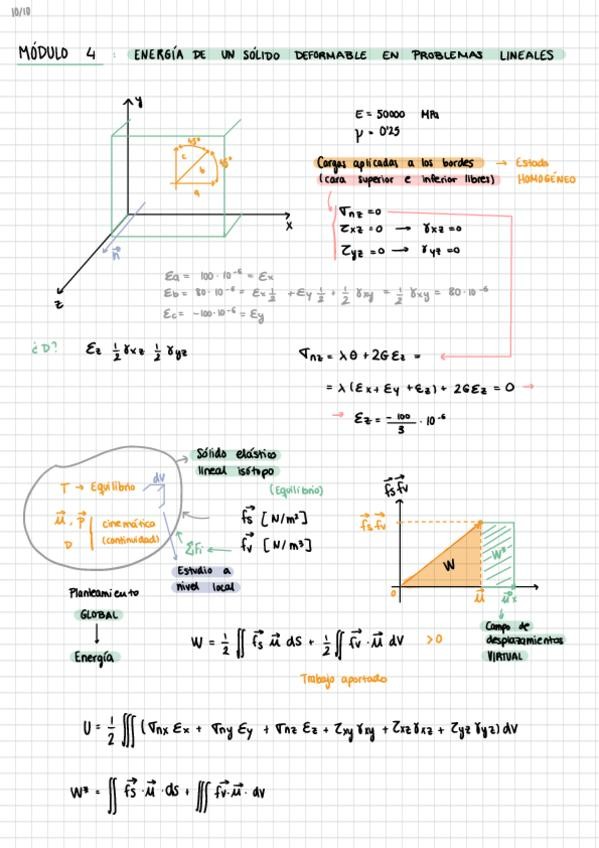 10/10
MÓDULO 4 : ENERGÍA DE UN SÓLIDO DEFORMABLE EN PROBLEMAS LINEALES
y
E = 50000 MPa
γ = 0'25
45°
45°
c
b
a
x
n⃗
z
Cargas aplicadas a los bordes → Estado
(cara superior e inferior libres) HOMOGÉNEO
σnz = 0
τxz = 0 → γxz = 0
τyz = 0 → γyz = 0
Ea = 100·10⁻⁶ = Ex
Eb = 80·10⁻⁶ = Ex½ + Ey½ + ½γxy = ½γxy = 80·10⁻⁶
Ec = -100·10⁻⁶ = Ey
¿D? Ez ½γxz ½γyz
σnz = λθ + 2GEz =
= λ(Ex + Ey + Ez) + 2GEz = 0 →
→ Ez = -100/3 · 10⁻⁶
Sólido elástico
lineal isótopo
(Equilibrio)
dv
T → Equilibrio
u⃗, p⃗ cinemático
D (continuidad)
f⃗s [N/m²]
ΣFi ← f⃗v [N/m³]
Estudio a
nivel local
f⃗s f⃗v
f⃗s f⃗v
W
W*
0
u⃗
u⃗*
Campo de
desplazamientos
VIRTUAL
Planteamiento
GLOBAL
Energía
W = ½ ∬ f⃗s u⃗ dS + ½ ∬ f⃗v · u⃗ dV >0
Trabajo aportado
U = ½ ∭ (σnx Ex + σny Ey + σnz Ez + τxy γxy + τxz γxz + τyz γyz) dV
W* = ∬ f⃗s · u⃗ · ds + ∭ f⃗v · u⃗ · dv